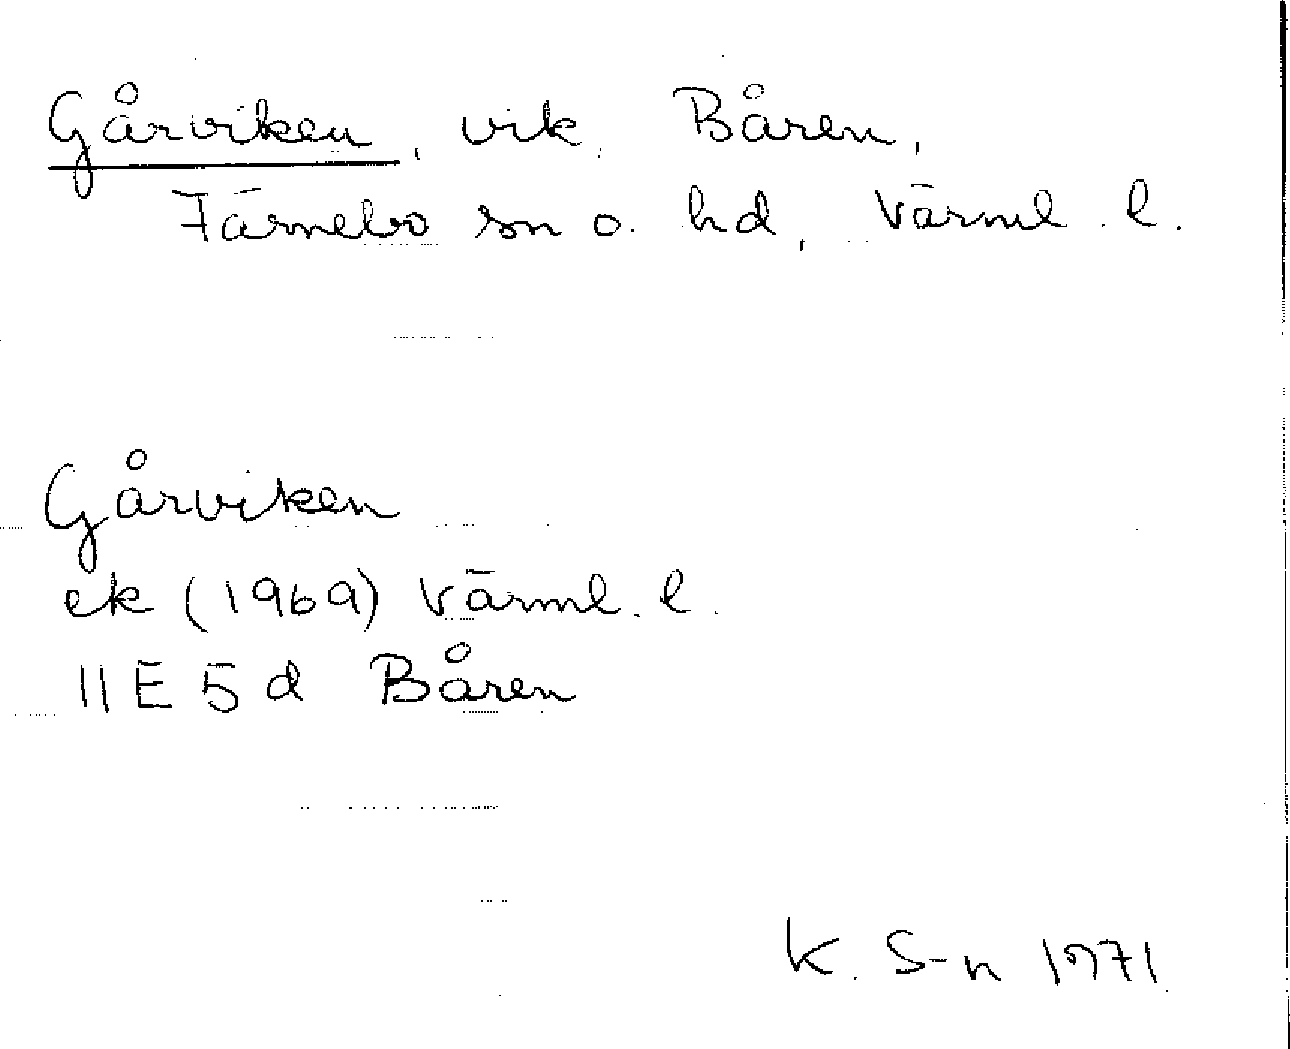 Gårviken, vik, Båren,
Färnebo sn o. hd, Värml. l.
Gårviken
ek (1969) Värml. l.
11E 5d Båren
K. S-n 1971